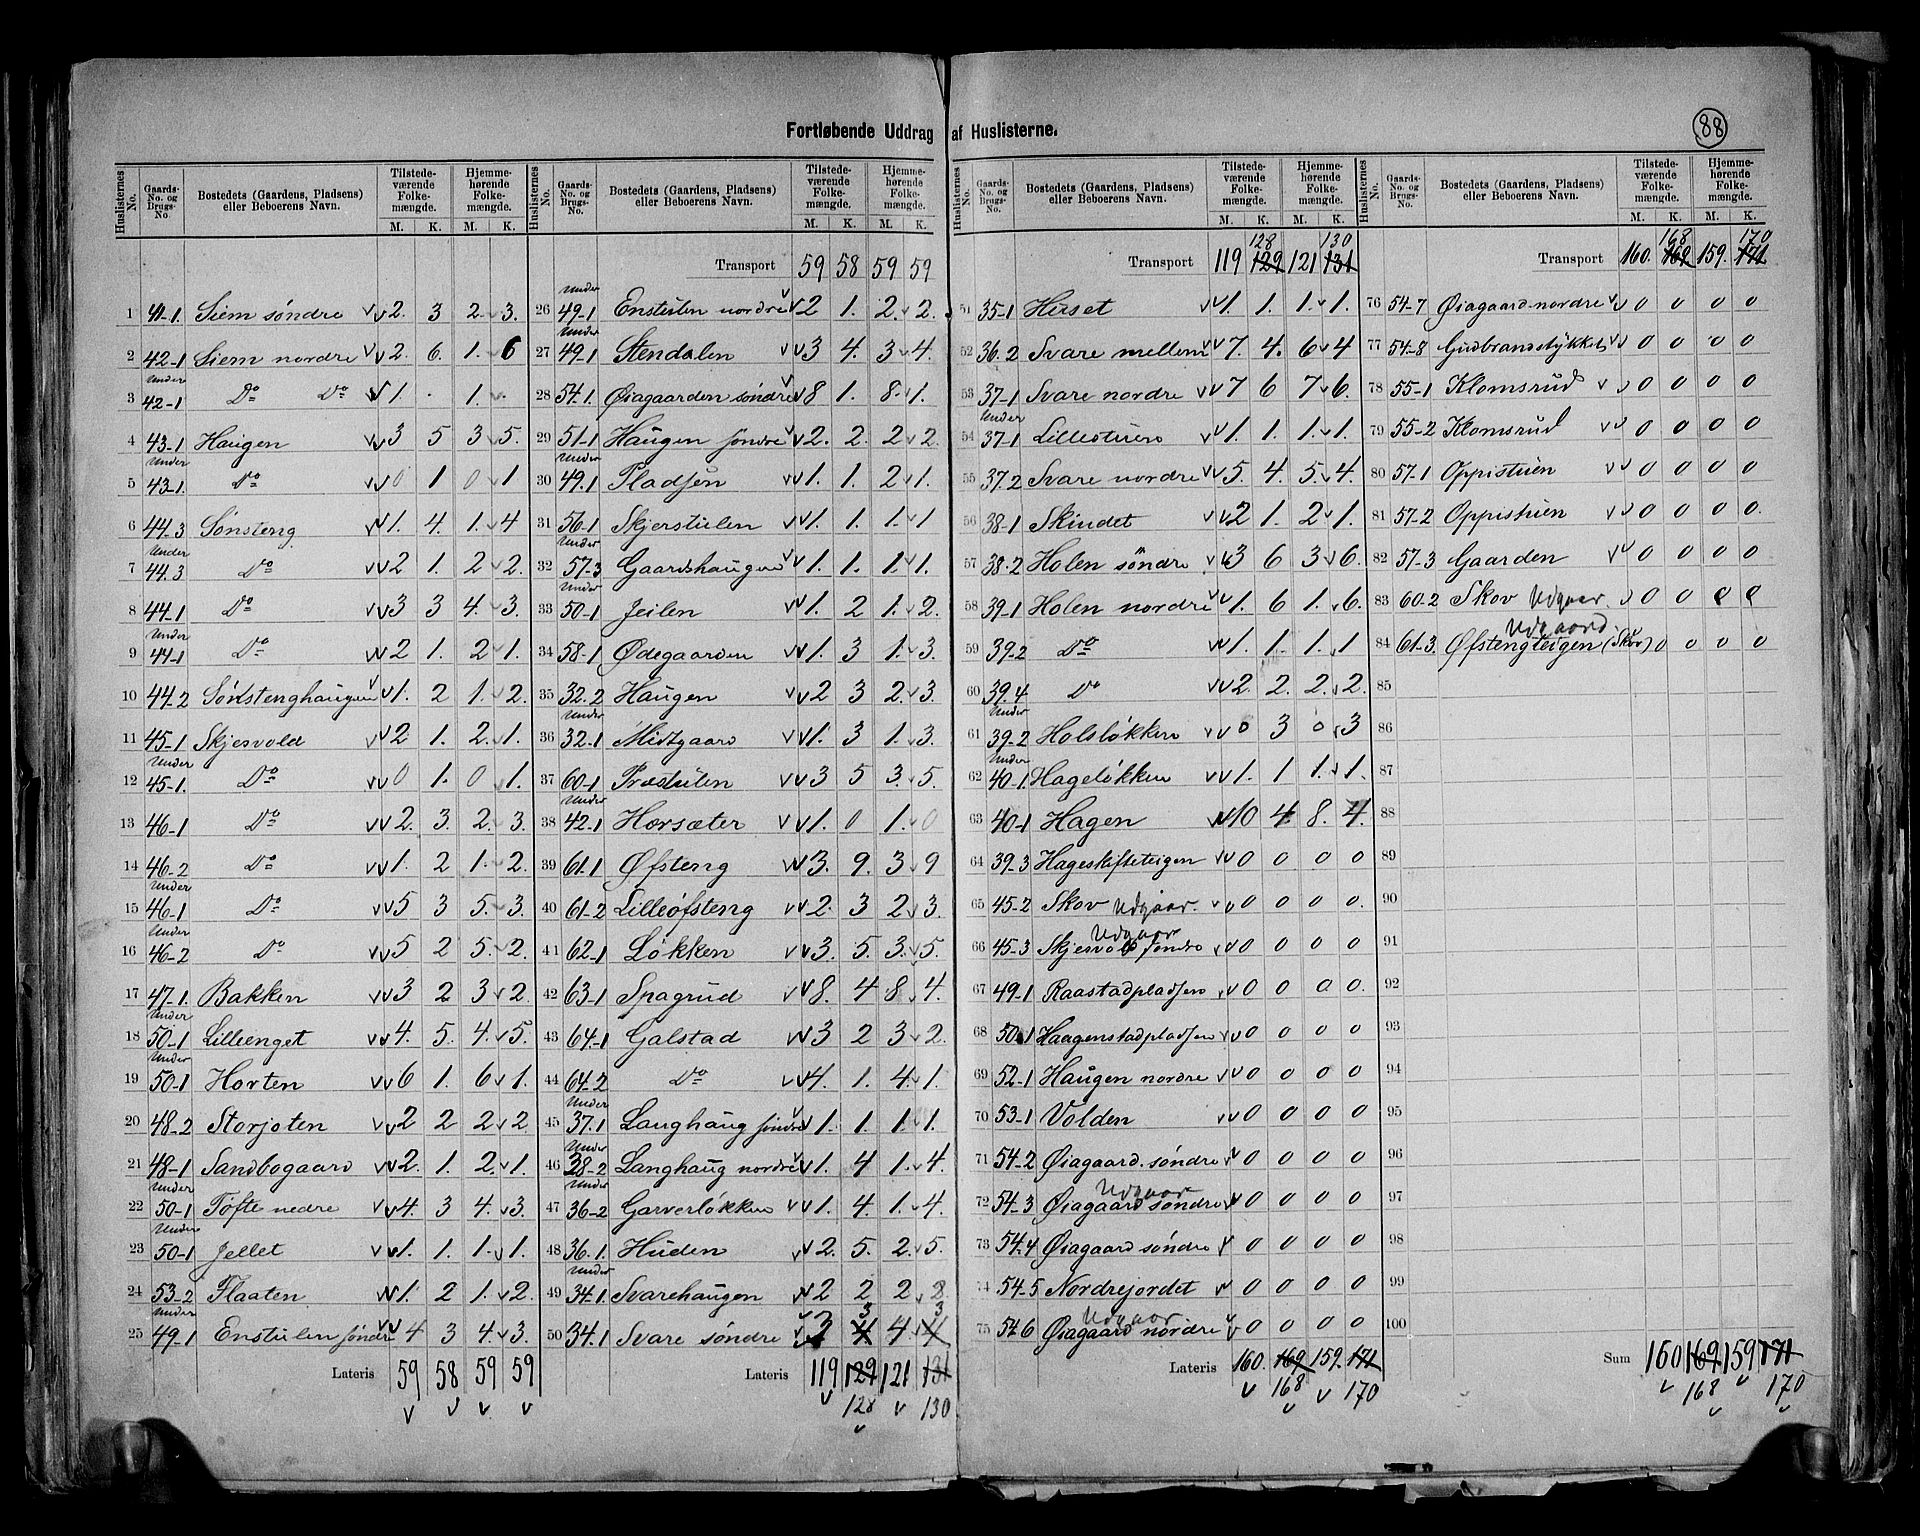 88
Fortløbende Uddrag af Huslisterne.
Huslisternes No. | Gaards-No. og Brugs-No. | Bostedets (Gaardens, Pladsen) eller Beboerens Navn. | Tilstedeværende Folkemængde. M. K. | Hjemmehørende Folkemængde. M. K.
1 41-1. Siem søndre 2. 3 2. 3.
2 42-1 Siem nordre 2. 6. 1. 6
3 Under 42-1 Do Do 1. · 1. ·
4 43-1 Haugen 3 5 3 5.
5 Under 43-1. Do 0 1 0 1
6 44-3 Sønsteng 1. 4. 1. 4
7 Under 44-3 Do 2 1. 2 2.
8 44-1 Do 3 3 4. 3.
9 Under 44-1 Do 2 1. 2 1.
10 44-2 Sønstenghaugen 1. 2 1. 2.
11 45-1 Skjesvold 2 1. 2. 1.
12 Under 45-1. Do 0 1. 0 1.
13 46-1 Do 2. 3. 2. 3.
14 46-2 Do 1. 2 1. 2.
15 Under 46-1 Do 5 3 5. 3.
16 Under 46-2 Do 5 2 5. 2.
17 47-1. Bakken 3 2 3 2.
18 Under 50-1 Lillienget 4. 5 4. 5.
19 Under 50-1 Horten 6 1. 6 1.
20 48-2 Storjoten 2 2 2 2.
21 48-1 Sandbogaard 2. 1. 2. 1.
22 Under 50-1 Tofte nedre 4. 3 4. 3.
23 Under 50-1 Jellet 1. 1. 1. 1.
24 53-2 Flaaten 1. 2 1. 2.
25 Under 49-1 Enstulen søndre 4 3 4. 3.
Lateris 59 58 59 59
Transport 59 58 59 59
26 Under 49-1 Enstulen nordre 2 1. 2. 2.
27 Under 49.1 Stendalen 3 4. 3 4.
28 54.1. Øiagaarden søndre 8 1. 8. 1.
29 51-1 Haugen søndre 2. 2. 2 2.
30 Under 49.1 Pladsen 1. 1. 2 1.
31 56-1 Skjerstulen 1. 1. 1. 1
32 Under 57-3 Gaardshaugen 1. 1. 1. 1.
33 Under 50-1 Jeilen 1. 2 1. 2.
34 58-1 Ødegaarden 1. 3 1. 3.
35 32.2 Haugen 2 3 2. 3.
36 Under 32.1 Midtgaard 1. 3 1. 3.
37 60-1 Præstulen 3 5 3. 5.
38 Under 42.1 Horsæter 1. 0 1. 0
39 61.1 Øfsteng 3. 9. 3 9
40 61-2 Lilleøfsteng 2. 3 2 3.
41 62-1 Løkken 3. 5. 3. 5.
42 63-1 Spagrud 8. 4 8. 4.
43 64-1 Galstad 3 2 3 2.
44 64-2 Do 4. 1. 4. 1.
45 Under 37.1 Langhaug søndre 1. 1. 1. 1.
46 Under 28-2 Langhaug nordre 1. 4 1. 4.
47 Under 36-2 Garverløkken 1. 4. 1. 4.
48 36.1. Huden 2. 5. 2. 5.
49 Under 34-1. Svarehaugen 2 2 2. 2
50 34.1 Svare søndre 3 4 3 4 4 3
Lateris 119 129 121 131
128 130
Transport 119 129 121 131
128 130
51 35-1 Hirset 1. 1. 1. 1.
52 36.2 Svare mellem 7. 4. 6 4
53 37-1 Svare nordre 7 6 7 6.
54 Under 37-1 Lillestuen 1. 1. 1. 1.
55 37.2 Svare nordre 5. 4. 5. 4.
56 38-1 Skindet 2 1. 2 1.
57 38-2 Holen søndre 3 6 3 6.
58 39-1 Holen nordre 1. 6 1. 6.
59 39-2 Do 1. 1. 1. 1
60 39.4 Do 2. 2. 2. 2.
61 Under 39-2 Holsløkken 0 3 0 3
62 Under 40-1. Hageløkken 1. 1 1. 1.
63 40-1 Hagen 10 4 8. 4.
64 39-3 Hageskifteteigen 0 0 0 0
65 45-2 Skov Udgaar. 0 0 0 0.
66 45-3 Skjesvold søndre Udgaar 0 0 0 0
67 49-1 Raastadpladsen 0 0 0 0.
68 50-1 Haagenstadpladsen 0 0 0 0
69 52-1 Haugen nordre 0 0 0 0
70 53-1 Volden 0 0 0 0
71 54-2 Øiagaard søndre 0 0 0 0
72 54-3 Øiagaard søndre Udgaar 0 0 0 0
73 54-4 Øiagaard søndre 0 0 0 0
74 54-5 Nordrejordet 0 0 0 0
75 54-6 Øiagaard nordre Udgaar 0 0 0 0
Lateris 160. 169 159. 171
168 170
Transport 160. 169 159. 171
168 170
76 54-7 Øiagaard nordre 0 0 0 0
77 54-8 Gudbrandstykket 0 0 0 0
78 55-1 Klomsrud 0 0 0 0
79 55-2 Klomsrud 0 0 0 0
80 57-1 Oppistuen 0 0 0 0
81 57-2 Oppistuen 0 0 0 0.
82 57-3 Gaarden 0 0 0 0
83 60-2 Skov Udgaar. 0 0 0 0
84 61-3. Øfstengteigen (Skov) Udgaard. 0 0 0 0
85
86
87
88
89
90
91
92
93
94
95
96
97
98
99
100
Sum 160 169 159 171
168 170